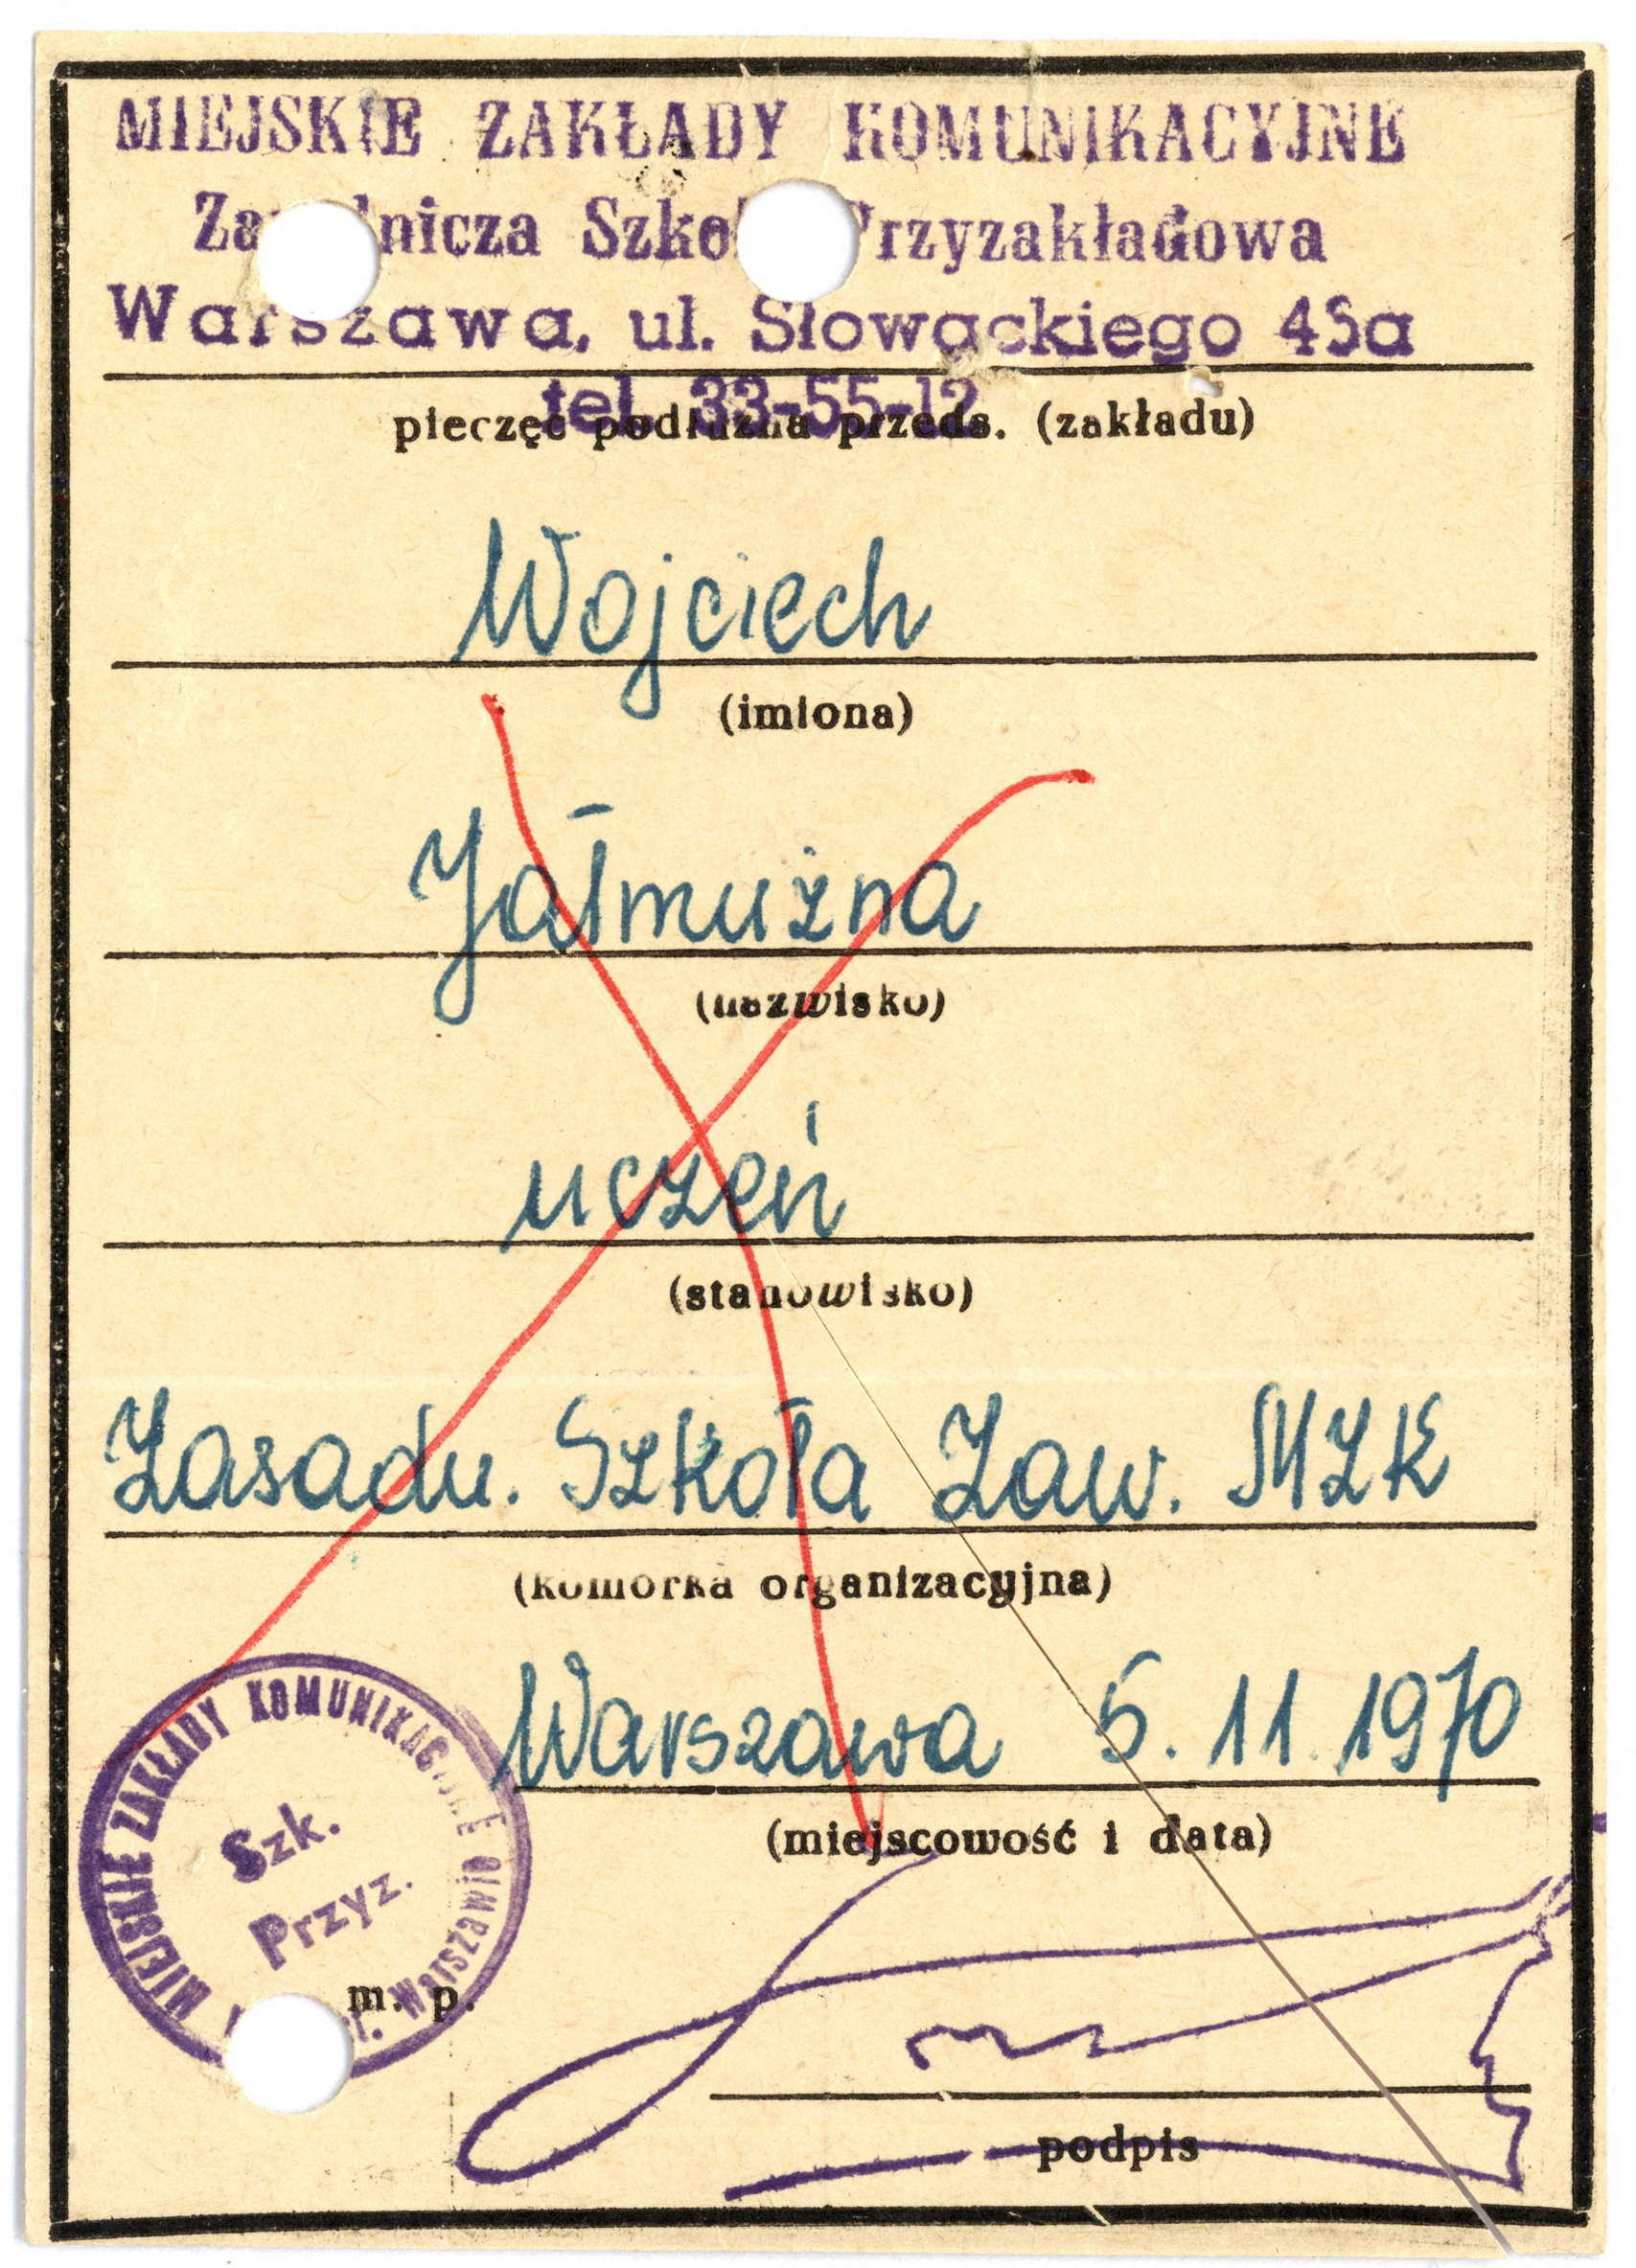 MIEJSKIE ZAKŁADY KOMUNIKACYJNE
Szkoła Przyzakładowa
Warszawa, ul. Słowackiego 45a
tel. 33-55-12
pieczęć podłużna przeds. (zakładu)
Wojciech
(imiona)
Jałmużna
(nazwisko)
uczeń
(stanowisko)
Zasadn. Szkoła Zaw. MZK
(komórka organizacyjna)
Warszawa 5.11.1970
(miejscowość i data)
MIEJSKIE ZAKŁADY KOMUNIKACYJNE
Szk.
Przyz.
Warszawie
m. p.
podpis